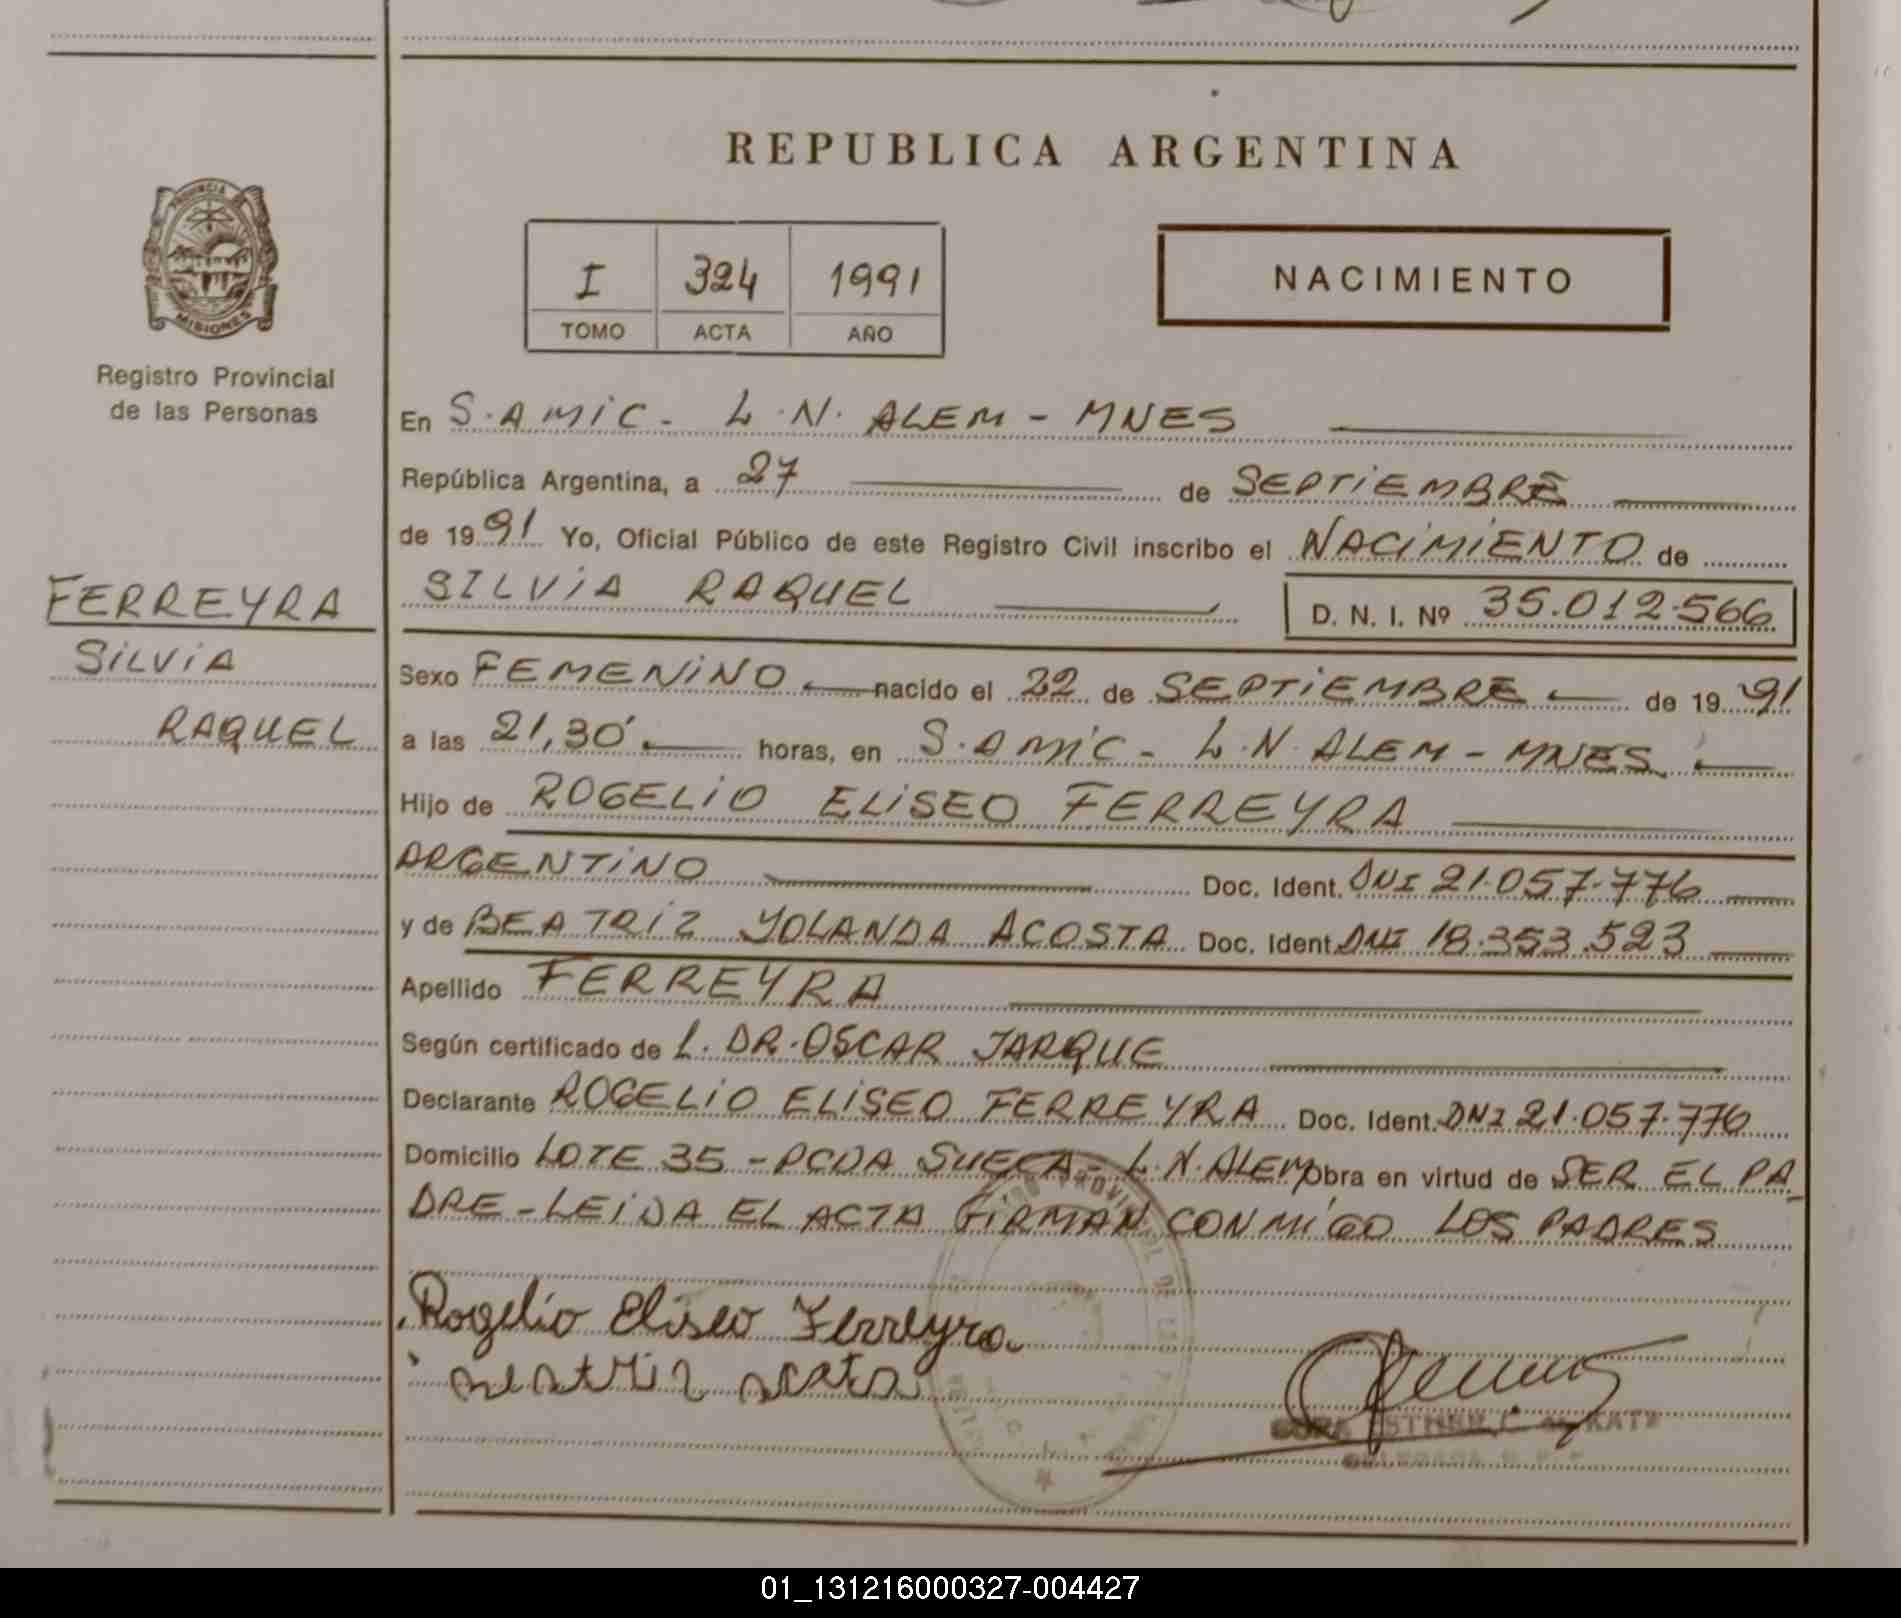 REPUBLICA ARGENTINA
PROVINCIA DE
MISIONES
Registro Provincial
de las Personas
I 324 1991
TOMO ACTA AÑO
NACIMIENTO
En S. AMIC - L.N. ALEM - MNES
República Argentina, a 27 de SEPTIEMBRE
de 1991 Yo, Oficial Público de este Registro Civil inscribo el NACIMIENTO de
SILVIA RAQUEL D. N. I. Nº 35.012.566
FERREYRA
SILVIA
RAQUEL
Sexo FEMENINO nacido el 22 de SEPTIEMBRE de 1991
a las 21,30' horas, en S. AMIC - L.N. ALEM - MNES
Hijo de ROGELIO ELISEO FERREYRA
ARGENTINO Doc. Ident. DNI 21.057.776
y de BEATRIZ YOLANDA ACOSTA Doc. Ident. DNI 18.353.523
Apellido FERREYRA
Según certificado de L. DR. OSCAR JARQUE
Declarante ROGELIO ELISEO FERREYRA Doc. Ident. DNI 21.057.776
Domicilio LOTE 35 - PCDA SUECA - L.N. ALEM Obra en virtud de SER EL PA-
DRE - LEIDA EL ACTA FIRMAN CONMIGO LOS PADRES
Rogelio Eliseo Ferreyra
01_131216000327-004427